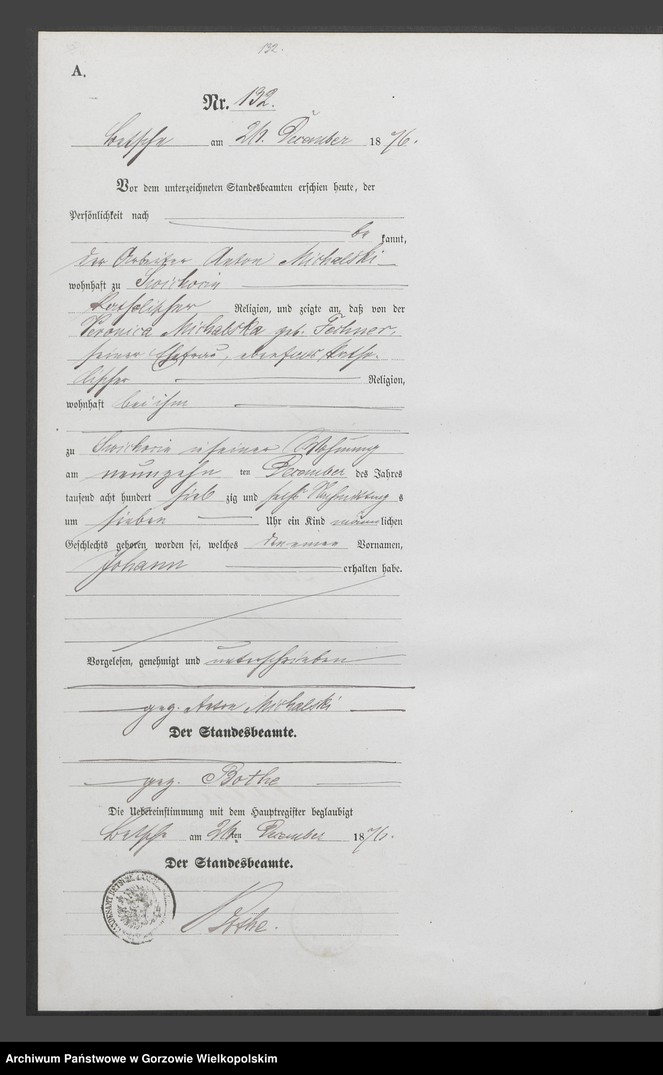 132.
A.
Nr. 132.
Betsche am 21. December 1876.
Vor dem unterzeichneten Standesbeamten erschien heute, der
Persönlichkeit nach
be kannt,
der Arbeiter Anton Michalski
wohnhaft zu
katholischer Religion, und zeigte an, daß von der
Veronica Michalska geb. Fechner,
seiner Ehefrau, ebenfalls katho-
lischer Religion,
wohnhaft bei ihm
zu in seiner Wohnung
am neunzehn ten December des Jahres
tausend acht hundert sieb zig und sechs Nachmittag s
um sieben Uhr ein Kind männlichen
Geschlechts geboren worden sei, welches den einen Vornamen,
Johann erhalten habe.
Vorgelesen, genehmigt und unterschrieben
gez. Anton Michalski
Der Standesbeamte.
gez. Bothe
Die Uebereinstimmung mit dem Hauptregister beglaubigt
Betsche am 21 ten December 1876.
Der Standesbeamte.
Bothe.
Archiwum Państwowe w Gorzowie Wielkopolskim